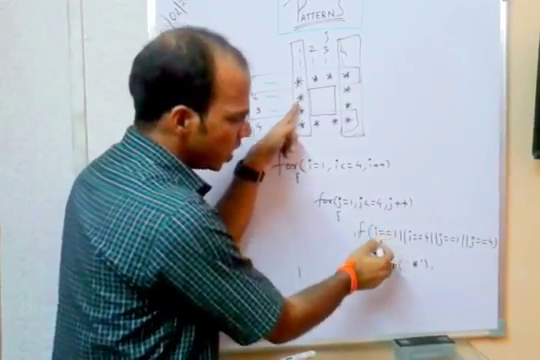 PATTERNS
j
1 2 3 4
* * * *
2 * *
3 * *
4 * * * *
for(i=1, i<=4, i++)
{
for(j=1, j<=4, j++)
{
if(i==1||i==4||j==1||j==4)
("*"),